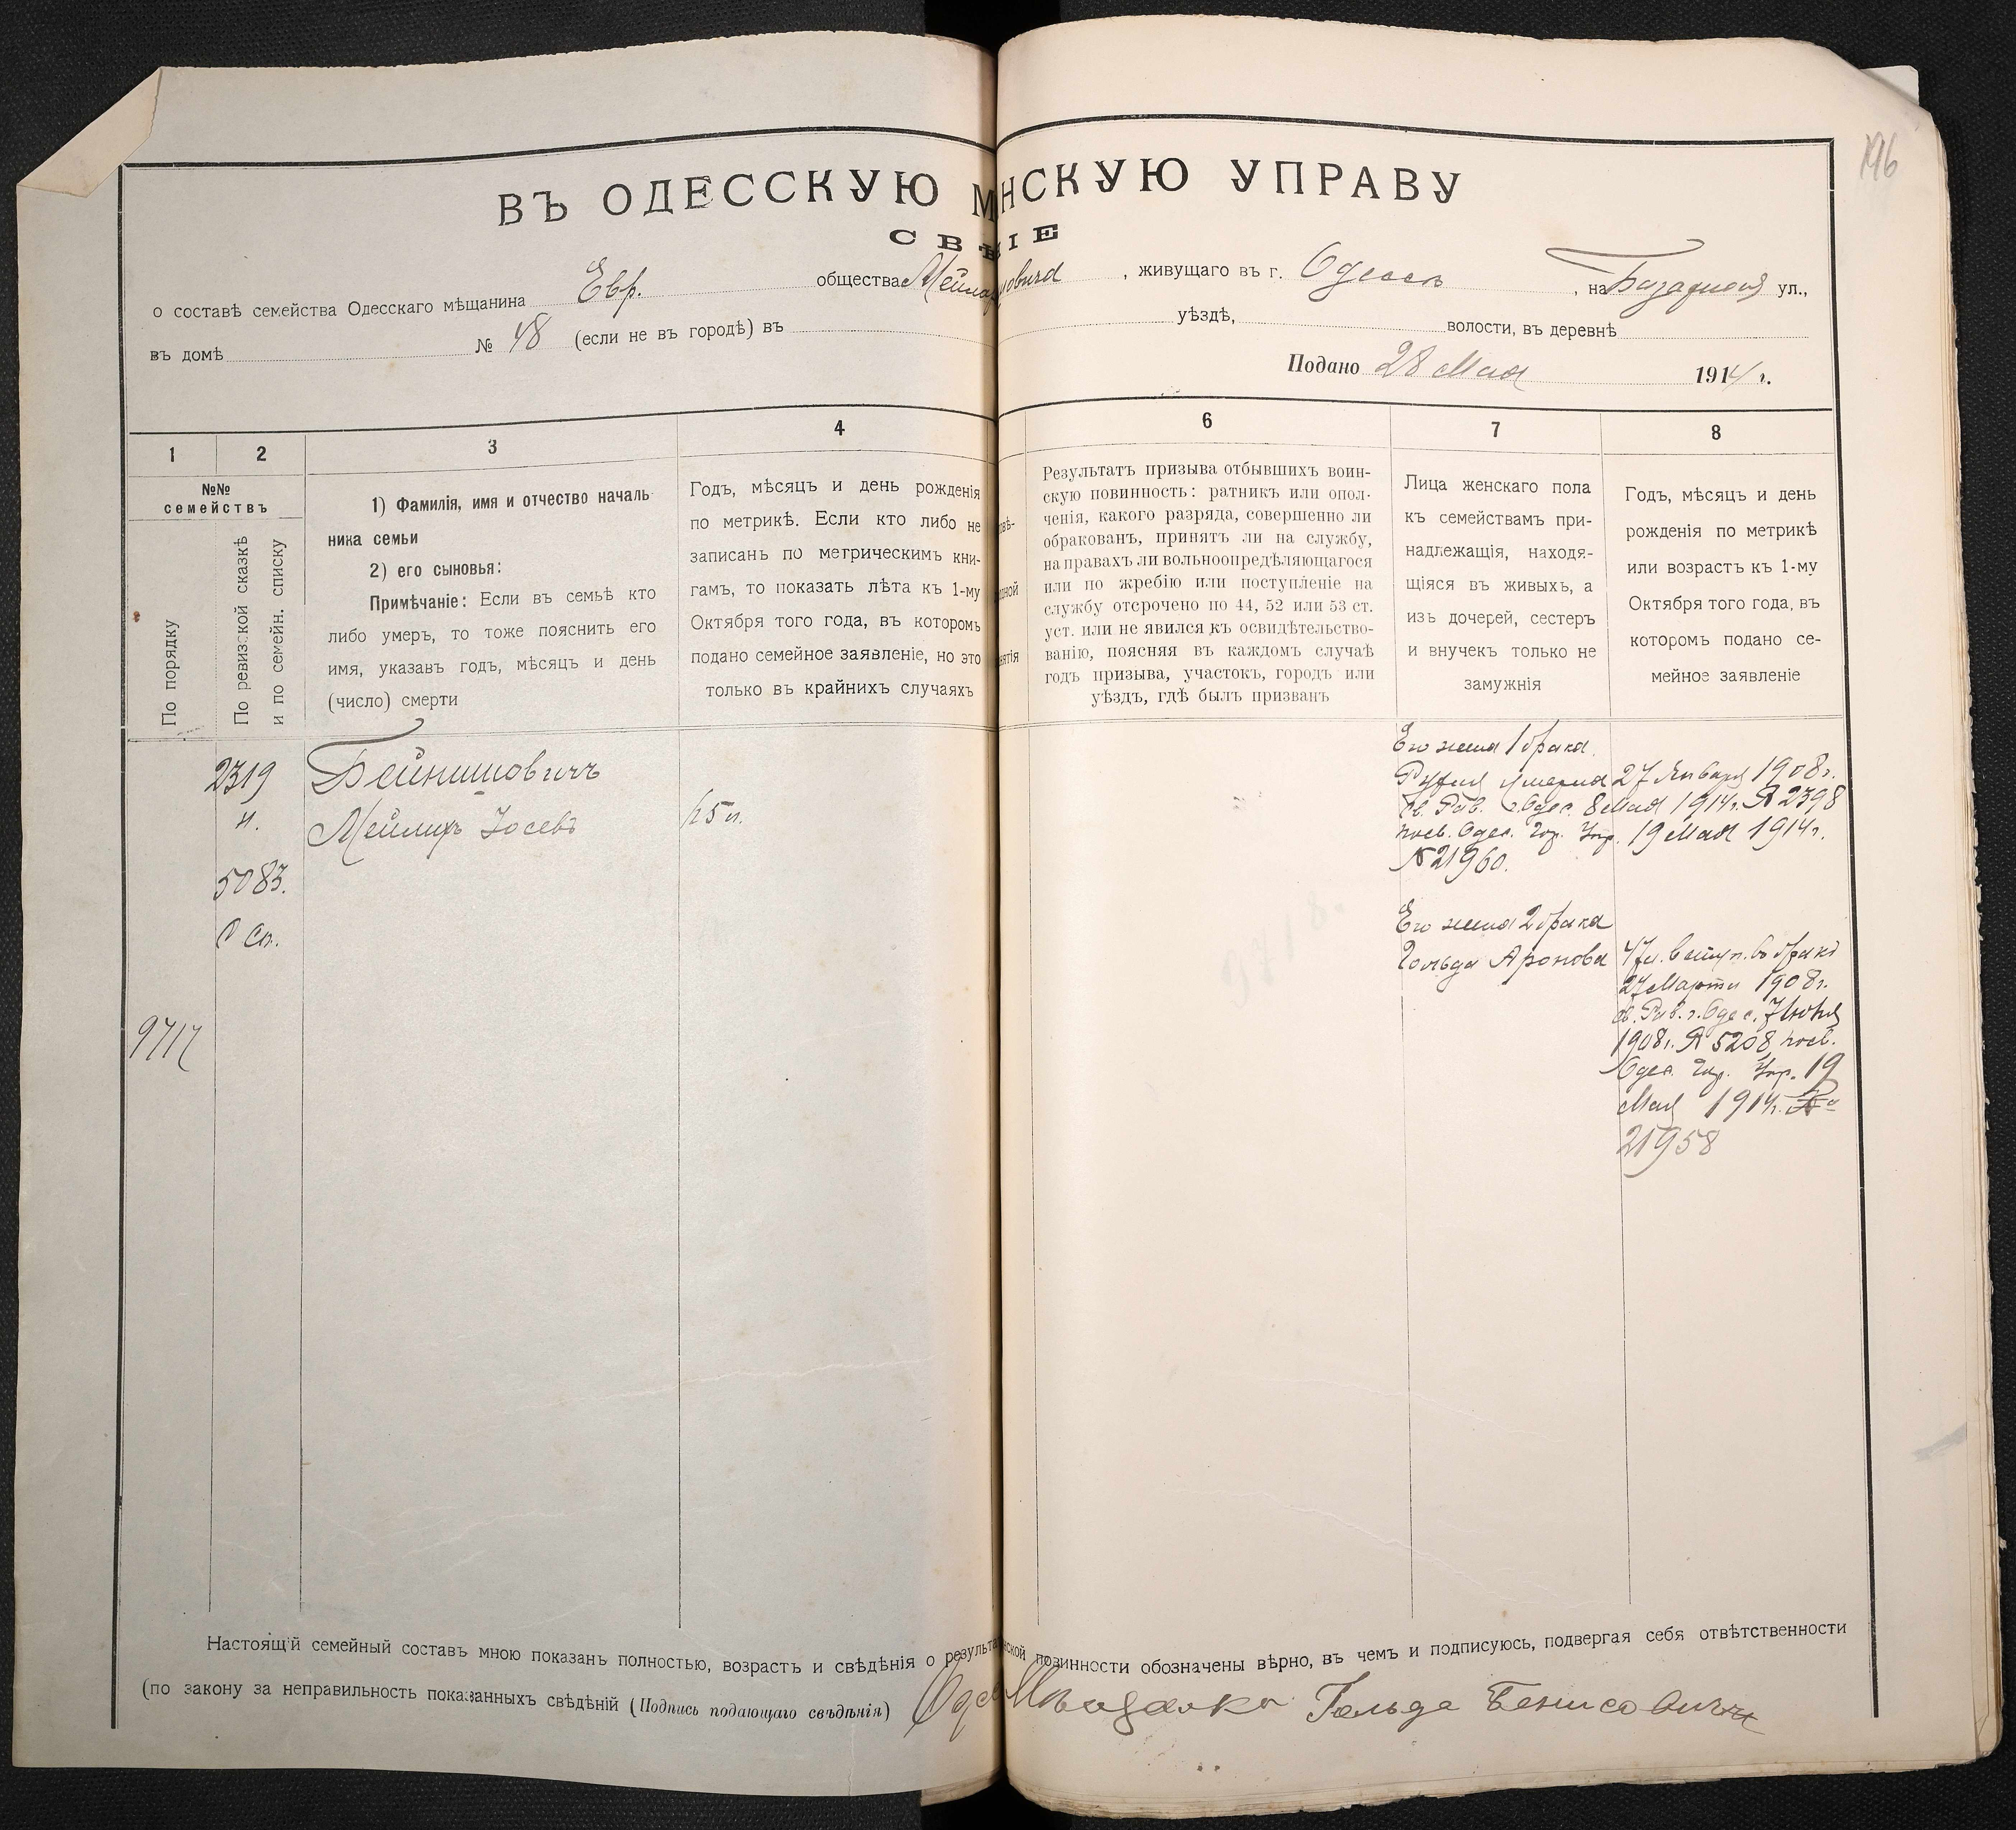 196
ВЪ ОДЕССКУЮ М НСКУЮ УПРАВУ
СВѢ ІЕ
о составѣ семейства Одесскаго мѣщанина Евр. общества , живущаго въ г. Одессѣ , на Базарной ул.,
въ домѣ № 48 (если не въ городѣ) въ уѣздѣ, волости, въ деревнѣ
Подано 28 Мая 1914 г.
1 2 3 4 6 7 8
№№
семействъ
По порядку
По ревизской сказкѣ
и по семейн. списку
1) Фамилія, имя и отчество началь-
ника семьи
2) его сыновья:
Примѣчаніе: Если въ семьѣ кто
либо умеръ, то тоже пояснить его
имя, указавъ годъ, мѣсяцъ и день
(число) смерти
Годъ, мѣсяцъ и день рожденія
по метрикѣ. Если кто либо не
записанъ по метрическимъ кни-
гамъ, то показать лѣта къ 1-му
Октября того года, въ которомъ
подано семейное заявленіе, но это
только въ крайнихъ случаяхъ
Результатъ призыва отбывшихъ воин-
скую повинность: ратникъ или опол-
ченія, какого разряда, совершенно ли
обракованъ, принятъ ли на службу,
на правахъ ли вольноопредѣляющагося
или по жребію или поступленіе на
службу отсрочено по 44, 52 или 53 ст.
уст. или не явился къ освидѣтельство-
ванію, поясняя въ каждомъ случаѣ
годъ призыва, участокъ, городъ или
уѣздъ, гдѣ былъ призванъ
Лица женскаго пола
къ семействамъ при-
надлежащія, находя-
щіяся въ живыхъ, а
изъ дочерей, сестеръ
и внучекъ только не
замужнія
Годъ, мѣсяцъ и день
рожденія по метрикѣ
или возрастъ къ 1-му
Октября того года, въ
которомъ подано се-
мейное заявленіе
2319
и.
5083.
9717
Бейнишовичъ
Мейлихъ Іосевъ
Его жена 1 брака
умерла 27 Января 1908 г.
св. Рав. г. Одес. 8 Мая 1914 г. № 2398
Одес. Гор. Упр. 19 Мая 1914 г.
№ 21960.
Его жена 2 брака
Гольда Аронова
47 л. вступ. въ бракъ
27 Марта 1908 г.
св. Рав. г. Одес.
1908 г. № 5208
Одес. Гор. Упр. 19
Мая 1914 г. №
21958
Настоящій семейный составъ мною показанъ полностью, возрастъ и свѣдѣнія о результа нской повинности обозначены вѣрно, въ чемъ и подписуюсь, подвергая себя отвѣтственности
(по закону за неправильность показанныхъ свѣдѣній (Подпись подающаго свѣдѣнія) Гольда